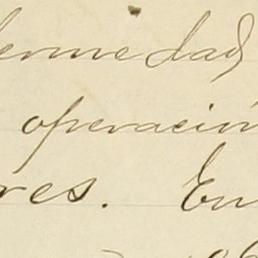 fermedad
operación
res. En